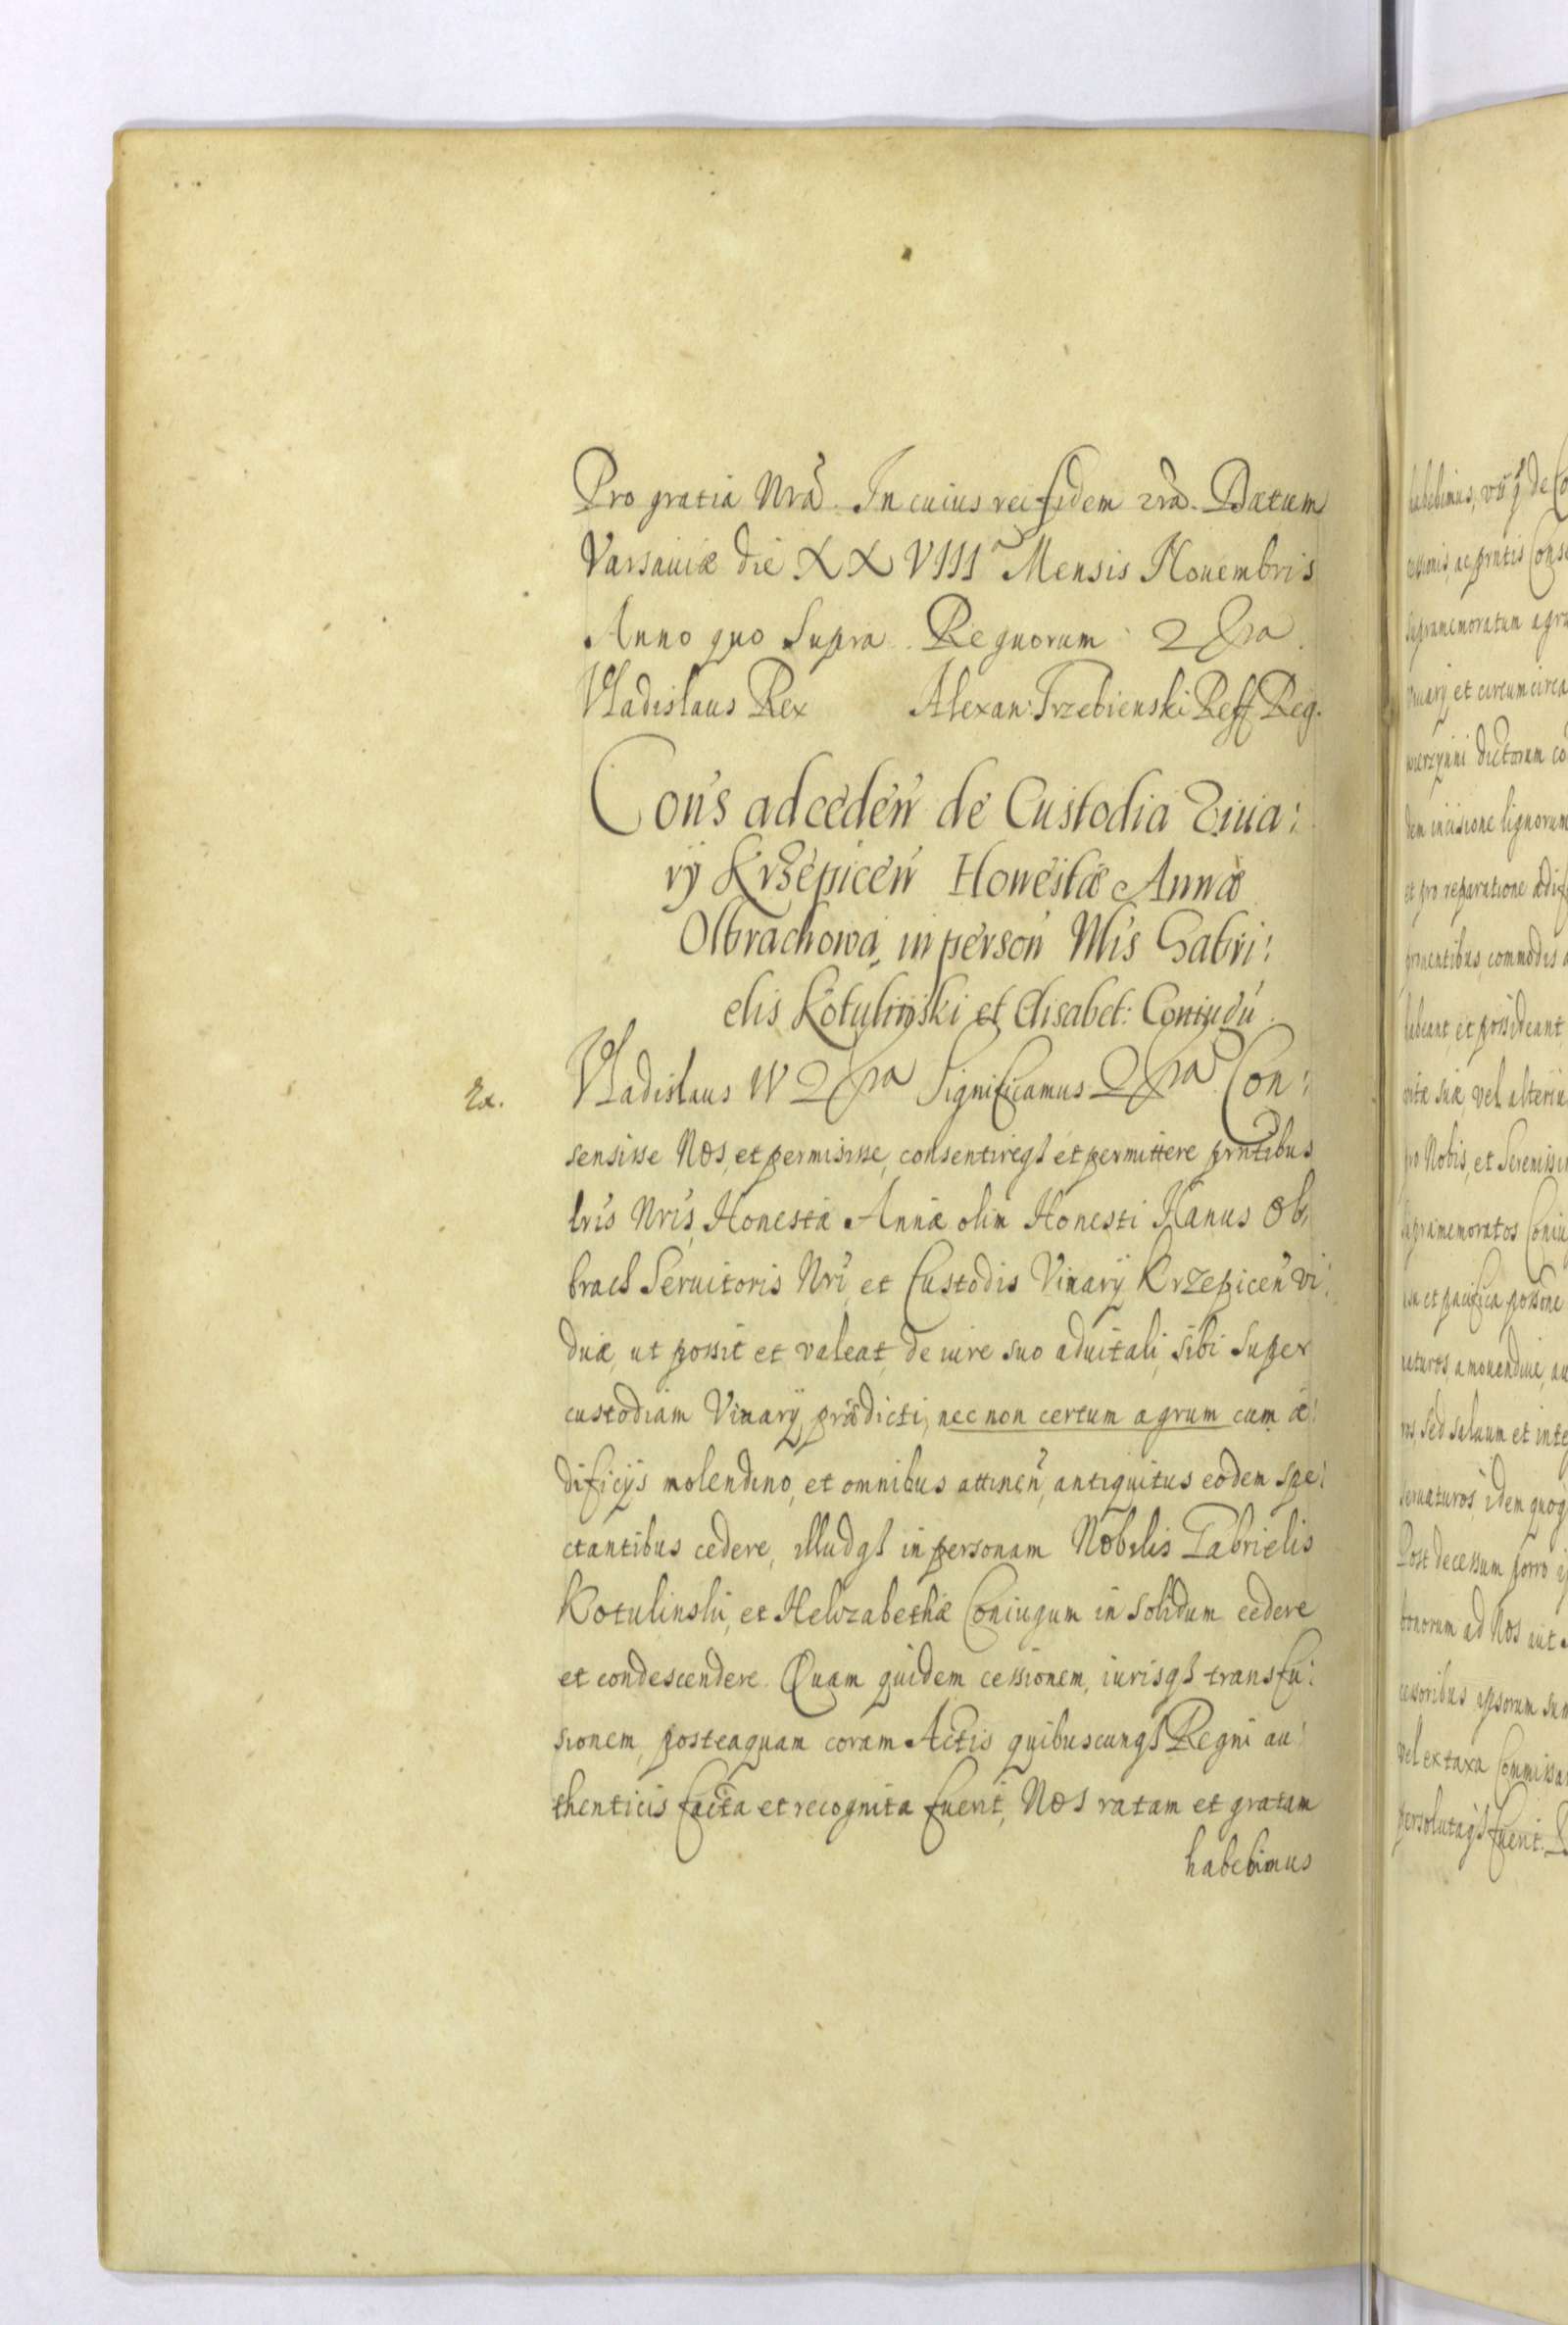 Pro gratia Nrã. In cuius rei fidem 2rã. Datum
Varsauiæ die XXVIIIª Mensis Nouembris
Anno quo Supra. Regnorum 2&ra.
Vladislaus Rex Alexan: Trzebienski Reff Reg.
Cons ad ceden de Custodia Viua:
rÿ Krzepicen Honestæ Annæ
Olbrachową in person Nlis Gabri:
elis Kotulinski et Elisabet: Coniugu.
Ex.
Vladislaus IV 2&ra Significamus 2&ra Con:
sensisse Nos, et permisisse, consentireqз et permittere prntibus
lris Nris, Honestæ Annæ olim Honesti Hanus Ol:
brach Seruitoris Nri, et Custodis Viuarÿ Krzepicen vi:
duæ, ut possit et valeat, de iure suo aduitali, sibi super
custodiam Viuarÿ, prædicti, nec non certum agrum cum æ:
dificÿs molendino, et omnibus attinen, antiquitus eodem spe:
ctantibus cedere, illudqз in personam Nobilis Gabrielis
Kotulinski, et Helzabethæ Coniugum in solidum cedere
et condescendere. Quam quidem cessionem, iurisqз transfu:
sionem, posteaquam coram Actis quibuscunqз Regni au:
thenticis facta et recognita fuerit, Nos ratam et gratam
habebimus
habebimus,
Supramemoratum
et circumcirca
dictorum
incisione lignorum
et pro reparatione
commodis
habeant, et possideant
vel
pro Nobis, et
Supramemoratos
et pacifica possone
sed saluum et
idem
Post decessum porro
bonorum ad Nos aut
ipsorum
vel ex taxa
fuerit.